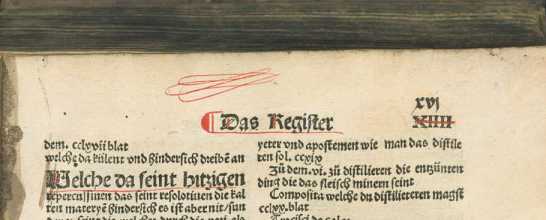 xvj
Das Register
XIIII
dem. cclvvii blat
welche da külent vnd hindersich dreibē an
Welche da seint hitzigen
repercussiuen das seint resolotiuen die kal
ten materyē hindersich es ist aber nit
yeter vnd apostemen wie man das distile
ren fol. ccxix
Zů dem .vi. zů distilieren die entzünten
ding die das fleisch minern seint
Composita welche on distilieren magst
cclxx. blat